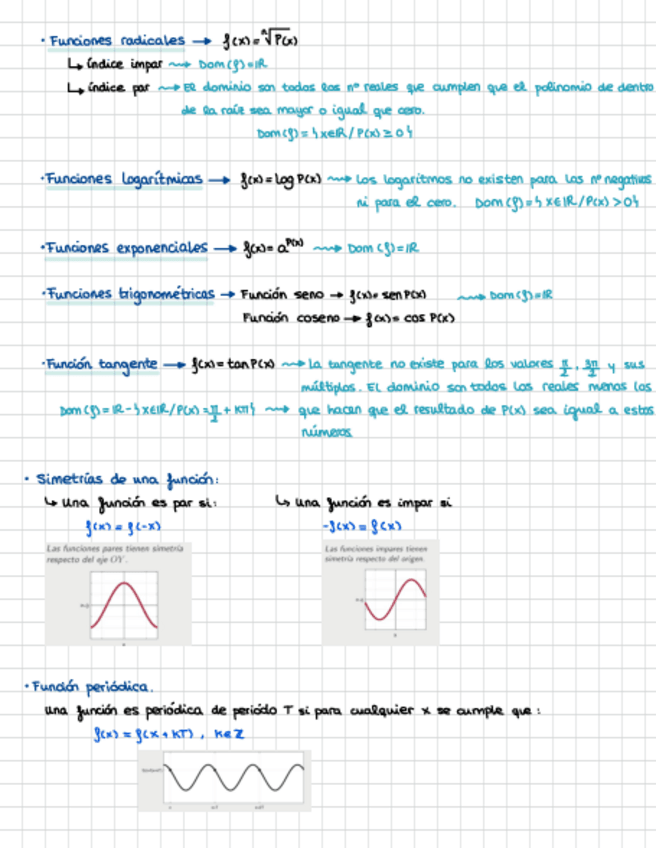 · Funciones radicales → f(x) = ⁿ√P(x)
↳ índice impar ⇝ Dom(f)=ℝ
↳ índice par ⇝ El dominio son todos los nº reales que cumplen que el polinomio de dentro
de la raíz sea mayor o igual que cero.
Dom(f)={x∈ℝ/P(x)≥0}
· Funciones logarítmicas → f(x)=log P(x) ⇝ Los logaritmos no existen para los nº negativos
ni para el cero. Dom(f)={x∈ℝ/P(x)>0}
· Funciones exponenciales → f(x)=a^P(x) ⇝ Dom(f)=ℝ
· Funciones trigonométricas → Función seno → f(x)=sen P(x) ⇝ Dom(f)=ℝ
Función coseno → f(x)=cos P(x)
· Función tangente → f(x)=tan P(x) ⇝ La tangente no existe para los valores π/2, 3π/2 y sus
múltiplos. El dominio son todos los reales menos los
Dom(f)=ℝ-{x∈ℝ/P(x)=π/2+kπ} ⇝ que hacen que el resultado de P(x) sea igual a estos
números
· Simetrías de una función:
↳ una función es par si: ↳ una función es impar si
f(x) = f(-x) -f(x) = f(x)
Las funciones pares tienen simetría
respecto del eje OY.
Las funciones impares tienen
simetría respecto del origen.
· Función periódica.
una función es periódica de período T si para cualquier x se cumple que:
f(x) = f(x+kT), k∈Z